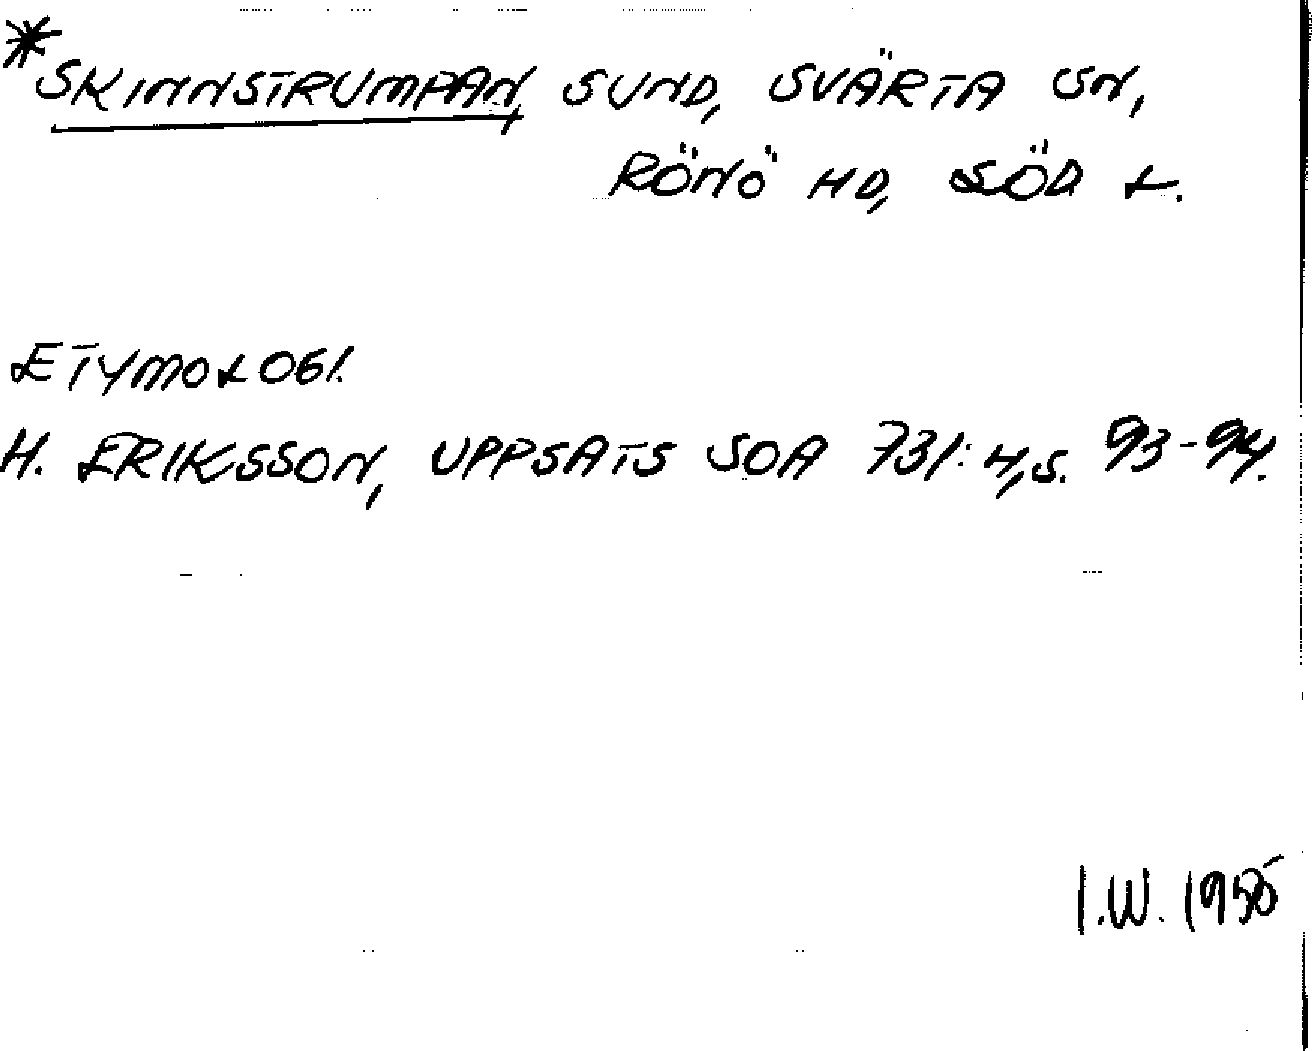 *SKINNSTRUMPAN, SUND, SVÄRTA SN,
RÖNÖ HD, SÖD L.
ETYMOLOGI.
H. ERIKSSON, UPPSATS SOA 731:4, S. 93-94.
I.W.